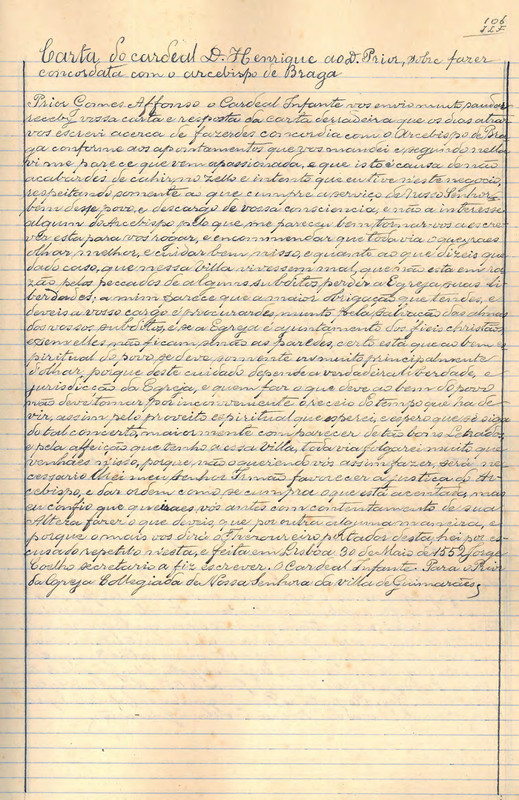 106
Carta do cardeal D. Henrique ao D. Prior, sobre fazer
concordata com o arcebispo de Braga
Prior Gomes Affonso o Cardeal Infante vos envio muito saudar
recebi vossa carta e resposta da carta derradeira que os dias atraz
vos escrevi acerca de fazerdes concordia com o Arcebispo de Bra
ga conforme aos apontamentos que vos mandei e segundo nella
vi me parece que vem apassionada, e que isto é causa de não
acabardes de cahir no zello e intento que eu tive neste negocio,
respeitando somente ao que cumpre a serviço de Nosso Senhor,
bem desse povo, e descargo de vossa consciencia, e não a interesse
algum do Arcebispo pelo que me pareceu bem tornar-vos a escre
ver esta para vos rogar, e encommendar que toda via o queiraes
olhar melhor, e cuidar bem nisso, e quanto ao que dizeis que
dado caso, que nessa Villa vivessem mal, que não está em ra
zão, pelos peccados de alguns subditos, perder a Egreja suas li
berdades; a mim parece que a maior obrigação que tendes, e
deveis a vosso cargo é procurardes, muito pela salvação das almas
dos vossos subditos, e se a Egreja é ajuntamento dos fieis christãos
e sem elles não ficam senão as paredes, certo está que ao bem es
piritual do povo se deve somente ou muito principalmente
d'olhar, porque deste cuidado depende a verdadeira liberdade, e
jurisdicção da Egreja, e quem for o que deve ao bem do povo
não deve tomar por inconveniente o receio do tempo que ha de
vir, assim pelo proveito espiritual que esperei, e espero que se siga
do tal concerto, maiormente com parecer de tão bons Letrados,
e pela affeição que tenho a essa Villa, toda via folgarei muito que
venhaes nisso, porque, não o querendo vós assim fazer, será ne
cessario Elrei meu Senhor Irmão favorecer a justiça do Ar
cebispo, e dar ordem como, se cumpra o que está acertado, mas
eu confio que queiraes, vós antes com contentamento de sua
Alteza fazer o que deveis que por outra alguma maneira, e
porque o mais vos dirá o Thesoureiro, portador desta, hei por es
cusado repetil-o nesta, e feita em Lisboa 30 de Maio de 1552 Jorge
Coelho secretario a fiz escrever. O Cardeal Infante. Para o Prior
da Egreja Collegiada de Nossa Senhora da Villa de Guimarães,